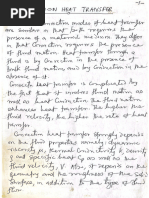 ION HEAT TRANSFER
Convection modes of heat transfer
are similar in that both require the
presence of a material medium. They differ
in that Convection requires the presence of
fluid motion. Heat transfer through
fluid is by convection in the presence of
bulk fluid motion and by Conduction in the
absence of it.
Convection heat transfer is complicated by
the fact that it involves fluid motion as
well as heat Conduction. The fluid motion
enhances heat transfer. The higher the
fluid velocity, the rate of heat
transfer.
Convection heat transfer strongly depends
on the fluid properties dynamic viscosity
thermal Conductivity, density
and Specific heat Cp as well as the
fluid velocity. Also, it depends on the
geometry and the roughness of the solid
Surface, in addition to the type of fluid
flow